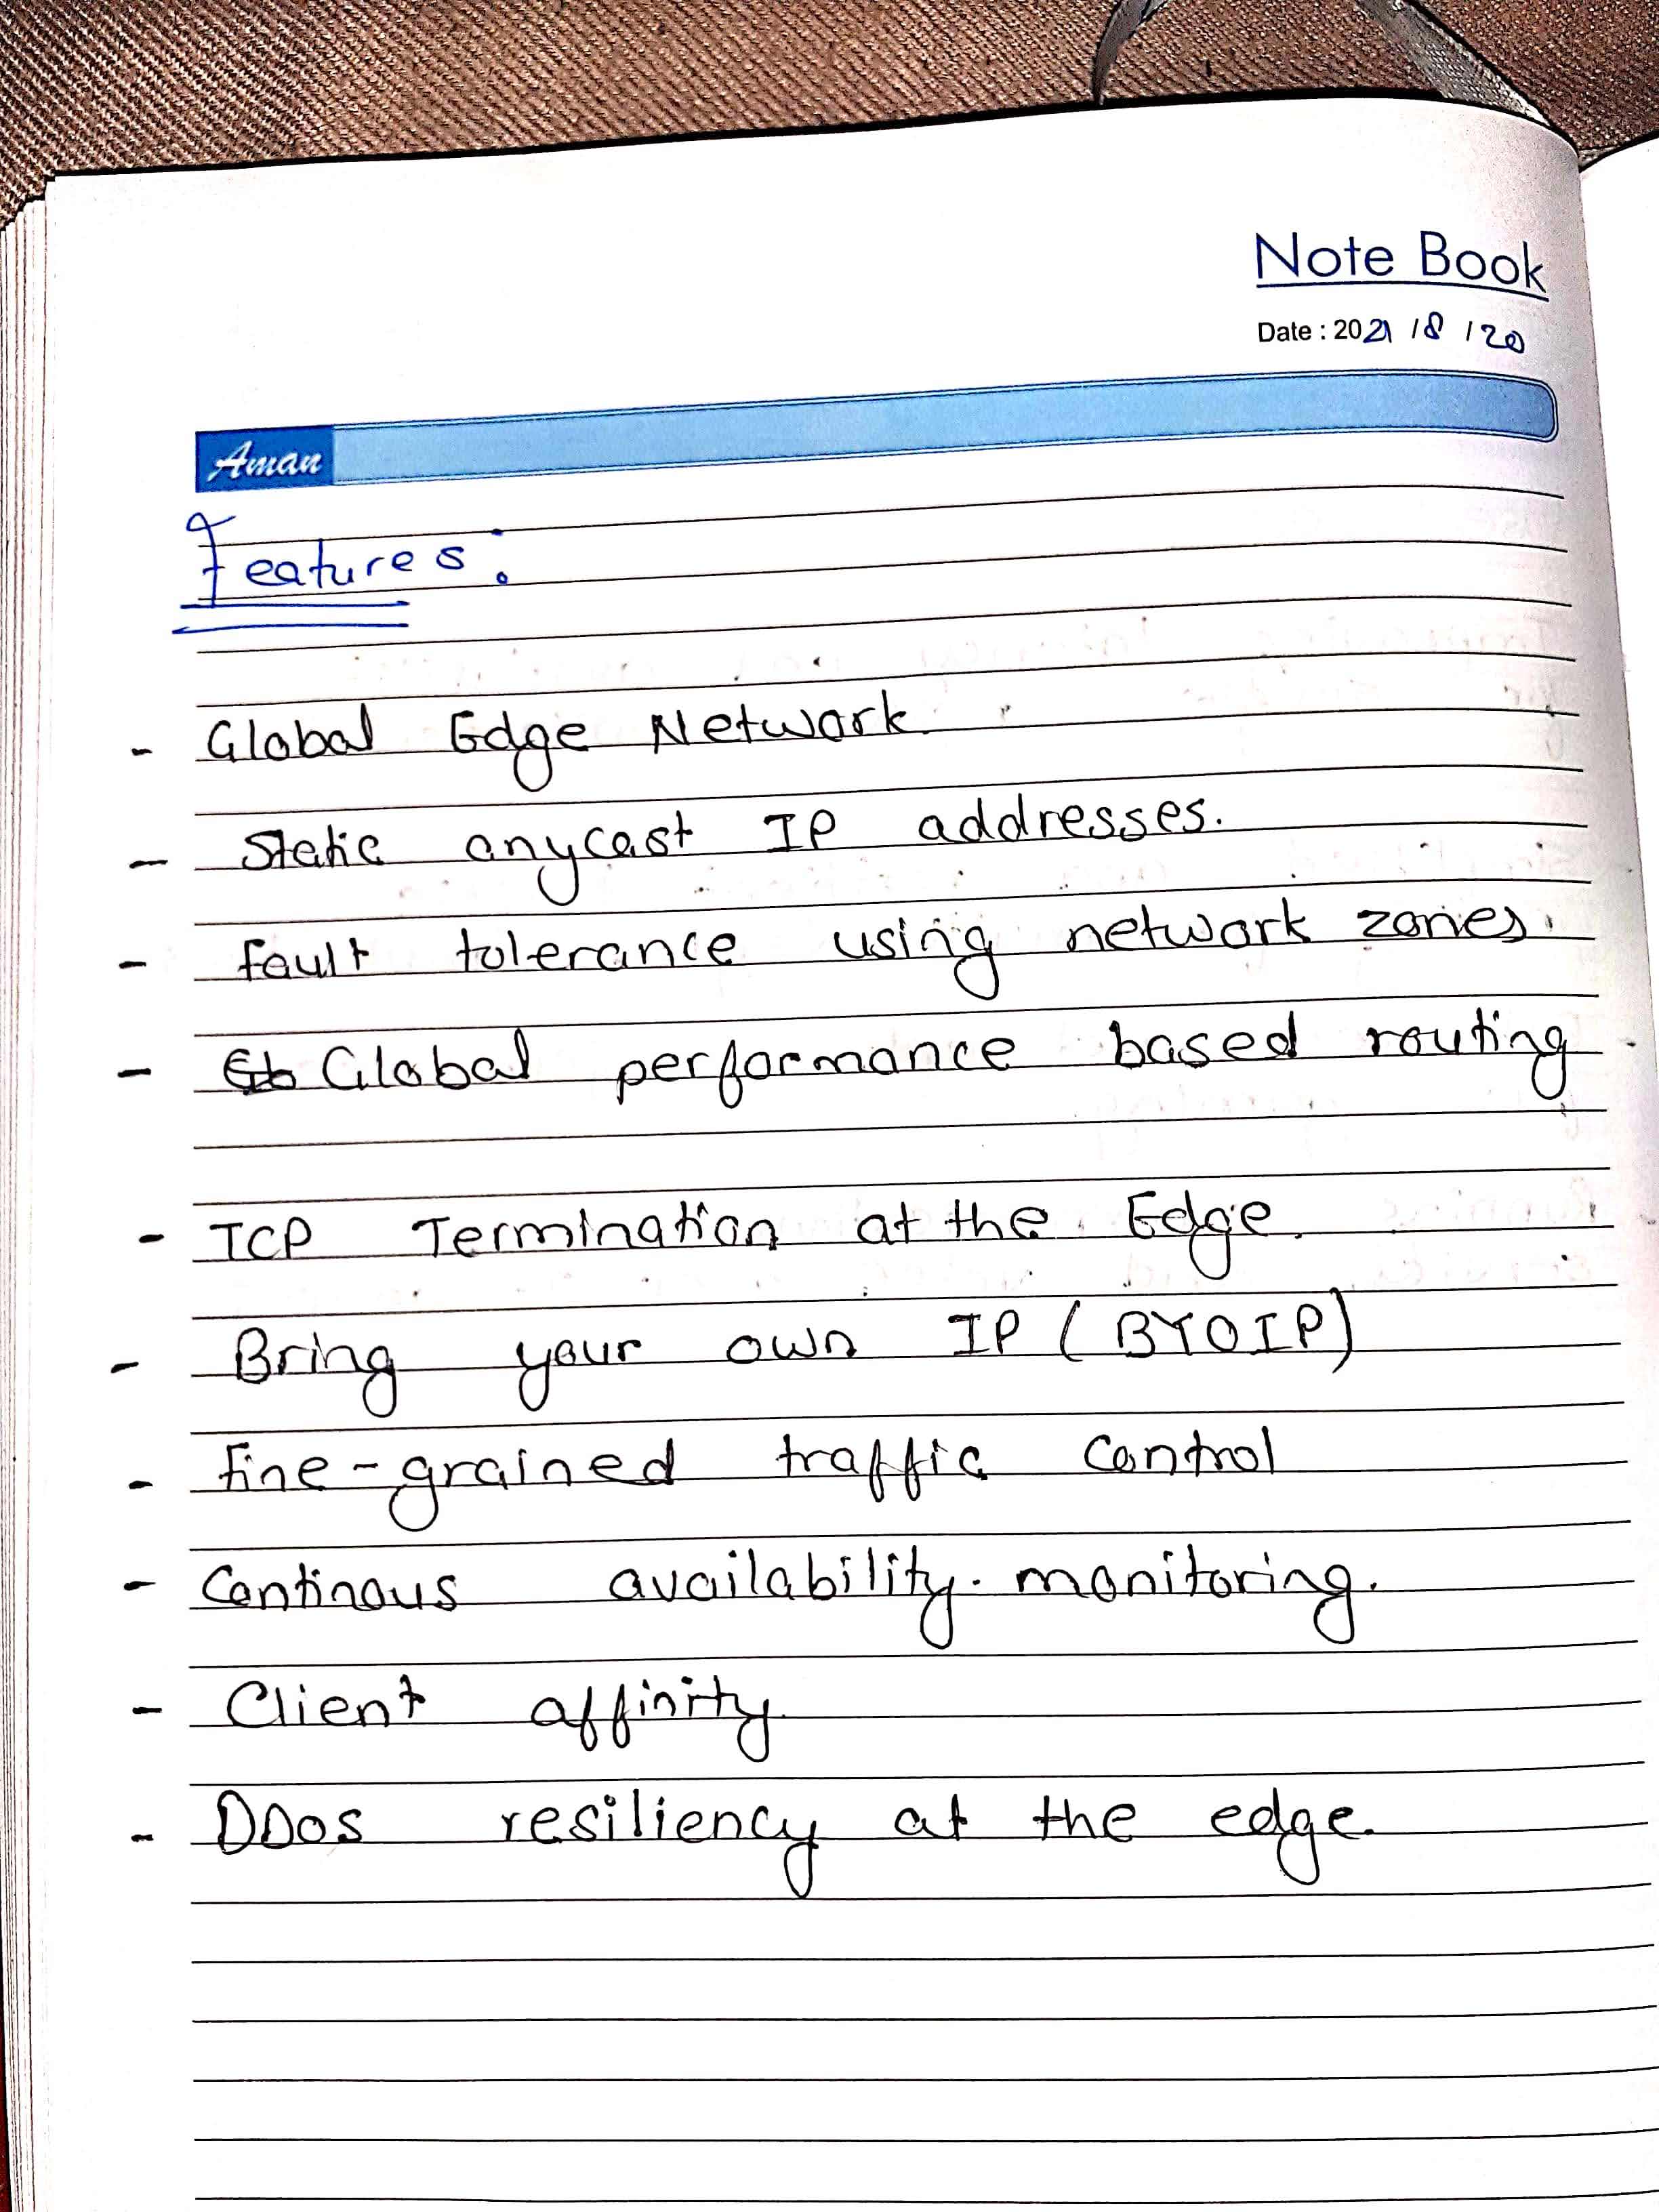 Note Book
Date : 2021 / 8 / 20
Aman
Features:
- Global Edge Network.
- Static anycast IP addresses.
- fault tolerance using network zones.
- Global performance based routing
- TCP Termination at the Edge.
- Bring your own IP (BYOIP)
- Fine-grained traffic control
- Continous availability monitoring.
- Client affinity.
- DDos resiliency at the edge.